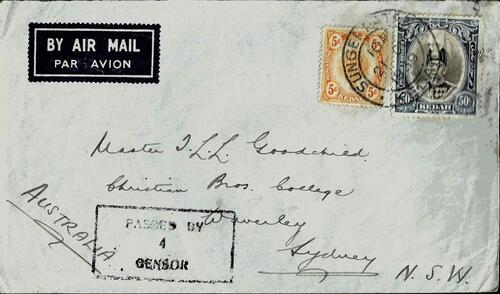 BY AIR MAIL
PAR AVION
5c
5c
KEDAH
SUNGEI
50
KEDAH
50
Master I.L.L. Goodchild.
Christian Bros. College
Waverley
Sydney
N.S.W.
AUSTRALIA
PASSED BY
4
CENSOR